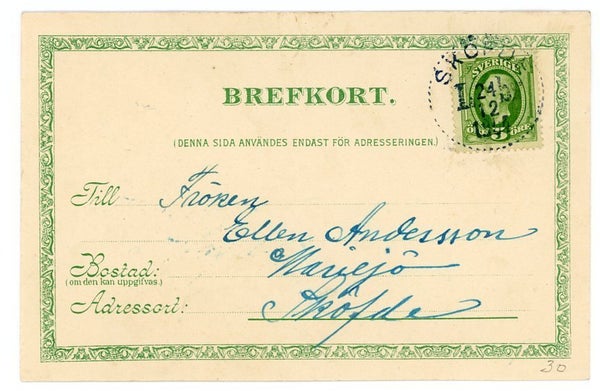 SKÖFDE
SVERIGE
24
2
5 ÖRE
BREFKORT.
(DENNA SIDA ANVÄNDES ENDAST FÖR ADRESSERINGEN.)
Till Fröken
Ellen Andersson
Bostad: Mariesjö
(om den kan uppgifvas.)
Adressort: Sköfde
30